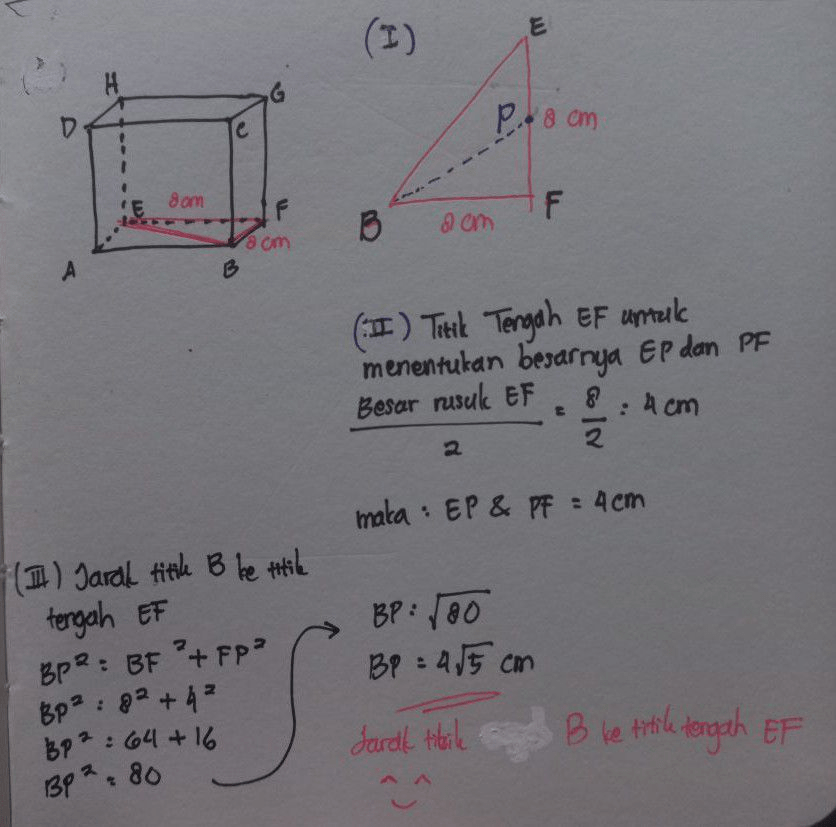 (I)
H
G
D
C
E
8 cm
F
8 cm
A
B
E
P
8 cm
B
8 cm
F
(II) Titik Tengah EF untuk
menentukan besarnya EP dan PF
Besar rusuk EF / 2 = 8/2 : 4 cm
maka : EP & PF = 4 cm
(III) Jarak titik B ke titik
tengah EF
BP² : BF² + FP²
BP² : 8² + 4²
BP² : 64 + 16
BP² : 80
BP : √80
BP = 4√5 cm
Jarak titik B ke titik tengah EF